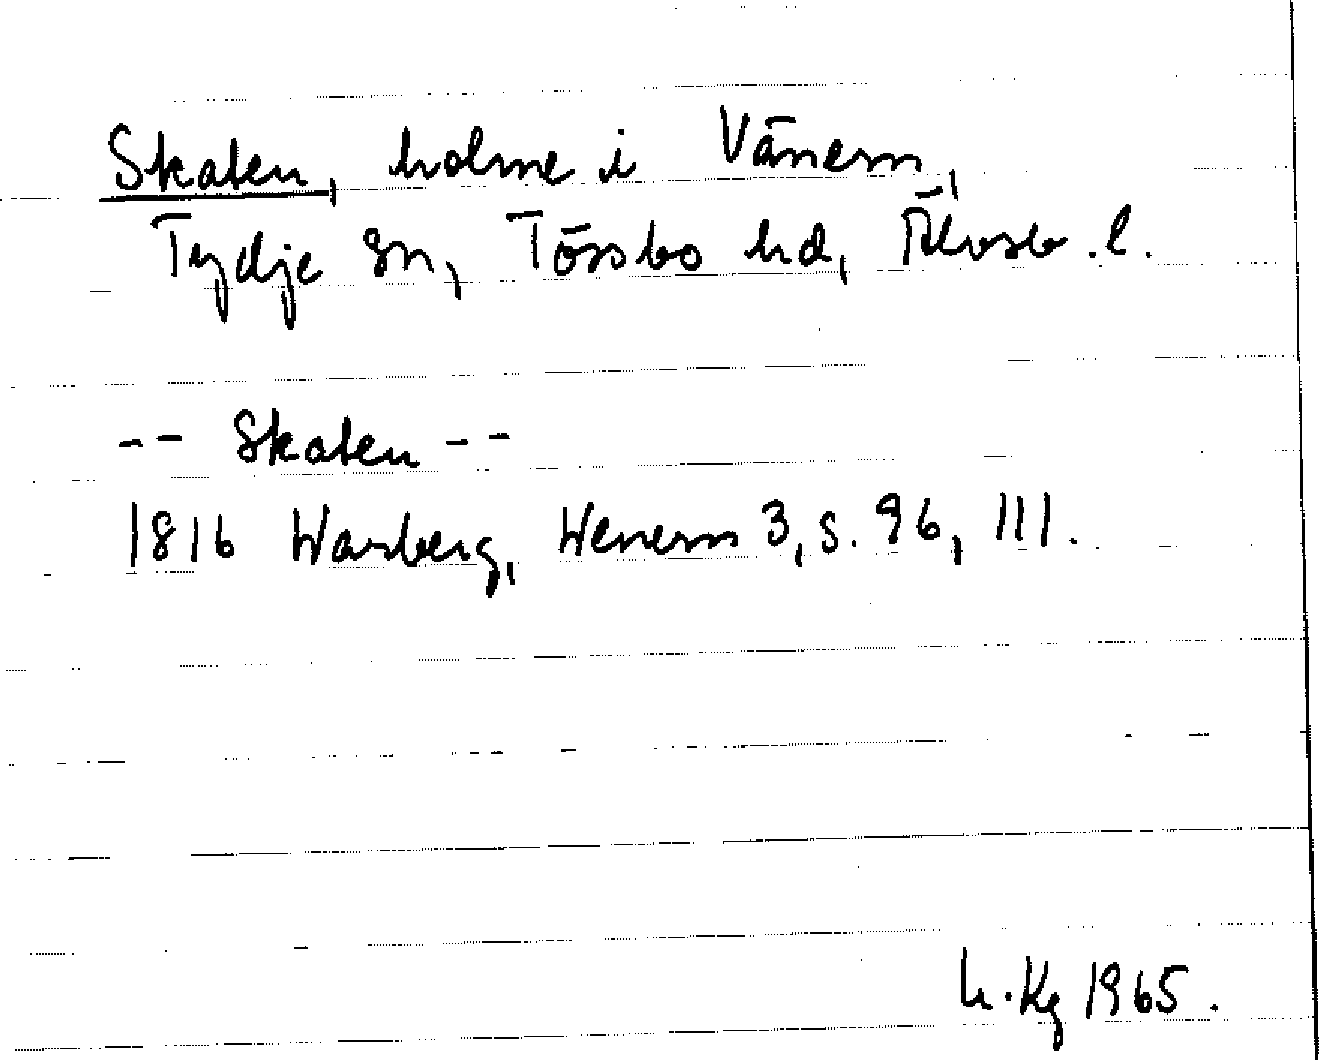 Skaten, holme i Vänern,
Tydje sn, Tössbo hd, Älvsb. l.
-- Skaten --
1816 Warberg, Wenern 3, s. 96, 111.
h. Kg 1965.